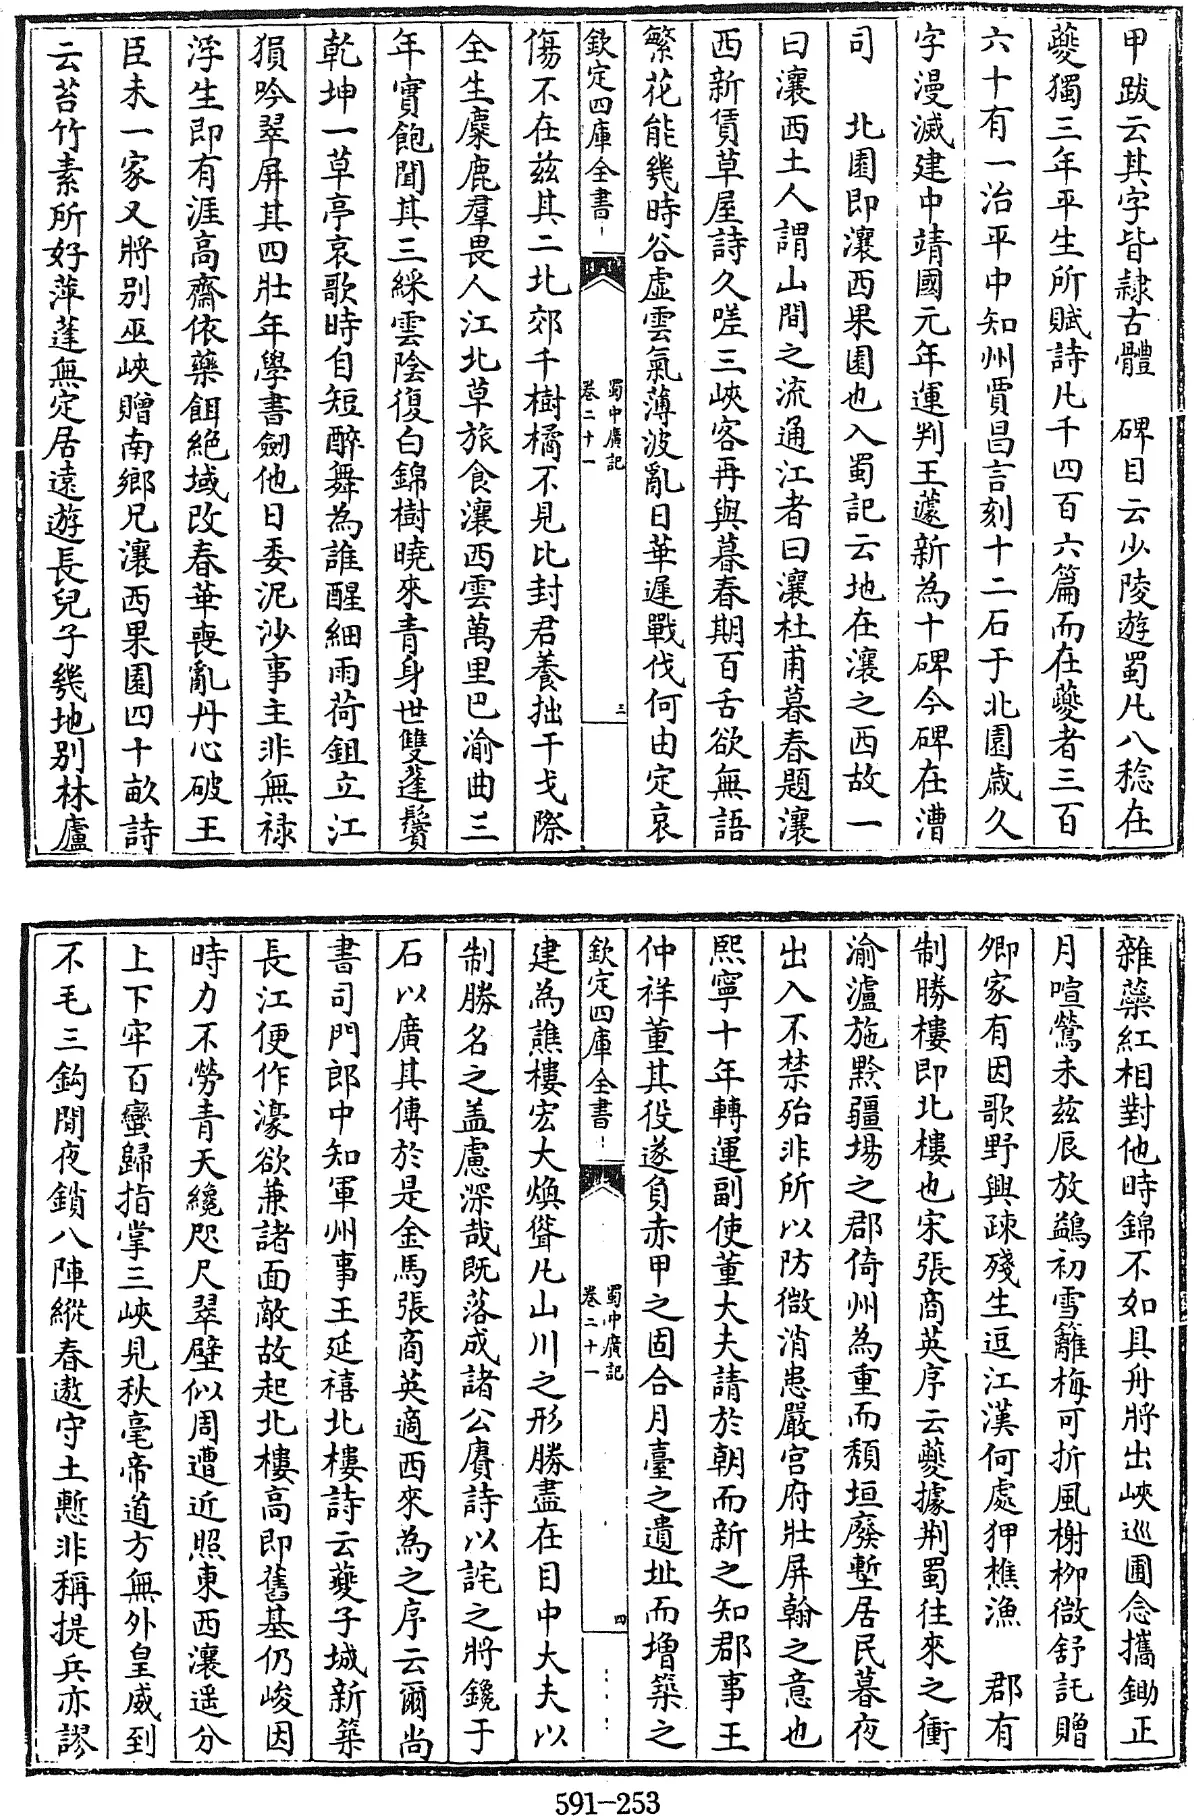 甲跋云其字皆隷古體　碑目云少陵遊蜀凡八稔在
夔獨三年平生所賦詩凡千四百六篇而在夔者三百
六十有一治平中知州賈昌言刻十二石于北園歲久
字漫滅建中靖國元年運判王蘧新為十碑今碑在漕
司　北園即瀼西果園也入蜀記云地在瀼之西故一
曰瀼西土人謂山間之流通江者曰瀼杜甫暮春題瀼
西新賃草屋詩久嗟三峽客再與暮春期百舌欲無語
繁花能幾時谷虛雲氣薄波亂日華遲戰伐何由定哀
欽定四庫全書
蜀中廣記
卷二十一
三
傷不在兹其二北郊千樹橘不見比封君養拙干戈際
全生麋鹿羣畏人江北草旅食瀼西雲萬里巴渝曲三
年實飽聞其三綵雲陰復白錦樹曉來青身世雙蓬鬢
乾坤一草亭哀歌時自短醉舞為誰醒細雨荷鉏立江
猿吟翠屏其四壯年學書劒他日委泥沙事主非無禄
浮生即有涯高齋依藥餌絶域改春華喪亂丹心破王
臣未一家又將别巫峽贈南鄉兄瀼西果園四十畝詩
云苔竹素所好萍蓬無定居逺遊長兒子幾地别林廬
雜蘂紅相對他時錦不如具舟將出峽巡圃念攜鋤正
月喧鶯未兹辰放鷁初雪籬梅可折風榭柳微舒託贈
卿家有因歌野興疎殘生逗江漢何處狎樵漁　郡有
制勝樓即北樓也宋張商英序云夔據荆蜀往來之衝
渝瀘施黔疆埸之郡倚州為重而頽垣廢塹居民暮夜
出入不禁殆非所以防微消患嚴宫府壯屏翰之意也
熙寧十年轉運副使董大夫請於朝而新之知郡事王
仲祥董其役遂負赤甲之固合月臺之遺址而增築之
欽定四庫全書
蜀中廣記
卷二十一
四
建為譙樓宏大煥聳凡山川之形勝盡在目中大夫以
制勝名之盖慮深哉既落成諸公賡詩以詫之將鑱于
石以廣其傳於是金馬張商英適西來為之序云爾尚
書司門郎中知軍州事王延禧北樓詩云夔子城新築
長江便作濠欲兼諸面敵故起北樓高即舊基仍峻因
時力不勞青天纔咫尺翠壁似周遭近照東西瀼遥分
上下牢百蠻歸指掌三峽見秋毫帝道方無外皇威到
不毛三鈎間夜鎖八陣縱春遨守土慙非稱提兵亦謬
591-253